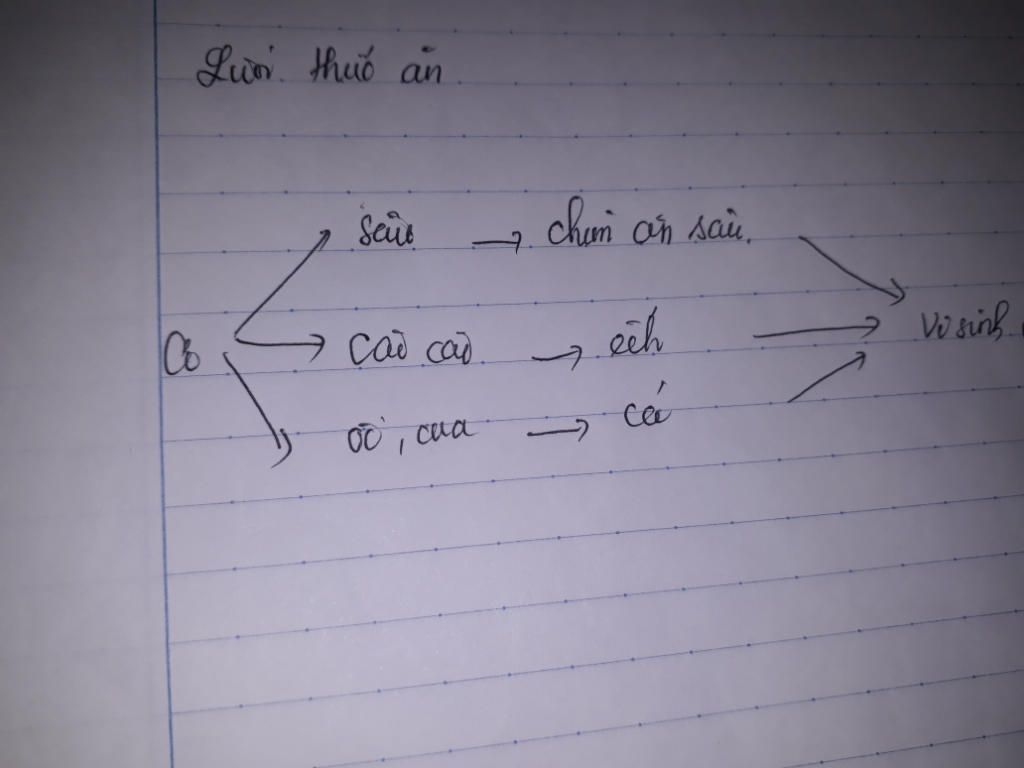 Lưới thứ ăn
sâu → chim ăn sâu.
Cỏ → cào cào → ếch → Vi sinh
ốc, cua → cá